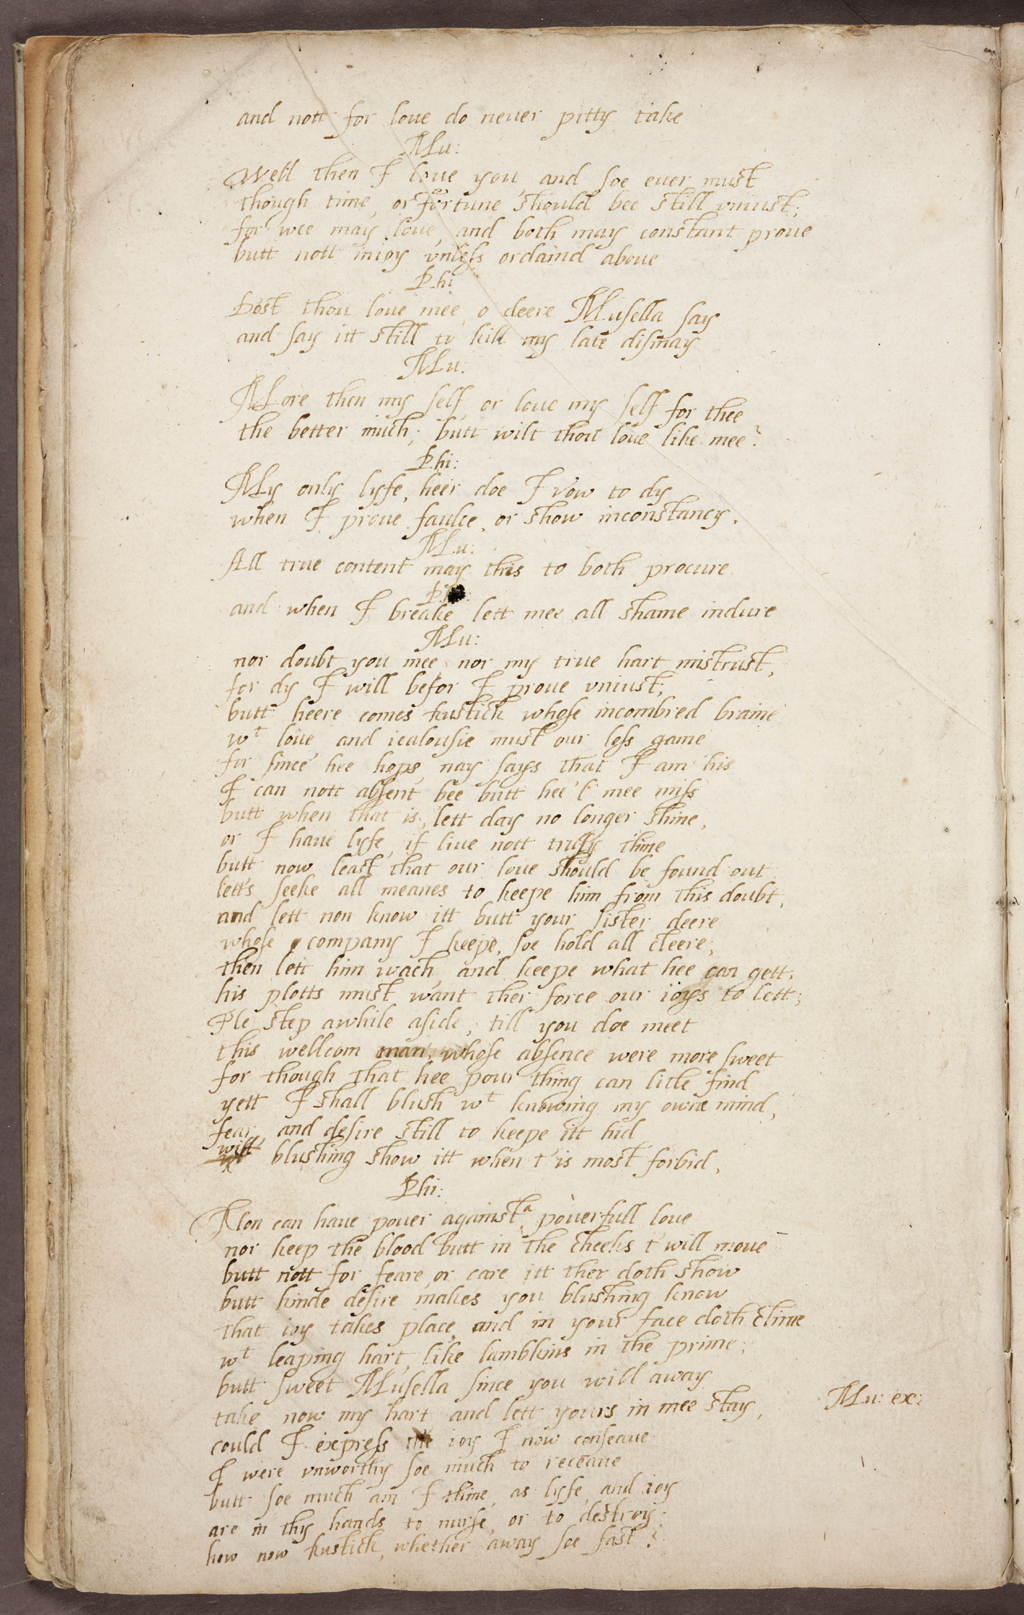 and nott for loue do neuer pitty take
Mu:
Well then I loue you, and soe euer must
though time, or fortune should bee still vniust;
for wee may loue, and both may constant proue
butt nott inioy vnless ordaind aboue
Phi
Dost thou loue mee, o deere Musella say
and say itt still to kill my late dismay
Mu:
More then my self, or loue my self for thee
the better much; butt wilt thou loue like mee?
Phi:
My only lyfe, heer doe I vow to dy
when I proue faulce, or show inconstancy.
Mu:
All true content may this to both procure
Phi:
and when I breake lett mee all shame indure
Mu:
nor doubt you mee, nor my true hart mistrust,
for dy I will befor I proue vniust;
butt heere comes Rustick whose incombred braine
wt loue and iealousie must our loss gaine
for since hee hops, nay says that I am his
I can nott absent bee butt hee'l mee miss
butt when that is, lett day no longer shine,
or I haue lyfe, if liue nott truly thine
butt now least that our loue should be found out
lett's seeke all meanes to keepe him from this doubt,
and lett non know itt butt your sister deere
whose company I keepe, soe hold all cleere,
then lett him wach, and keepe what hee can gett,
his plotts must want ther force our ioys to lett;
I'le step awhile aside, till you doe meet
this wellcom man, whose absence were more sweet
for though that hee pour thing can litle find
yett I shall blush wt knowing my owne mind,
fear, and desire still to keepe itt hid
will blushing show itt when t'is most forbid,
Phi:
Non can haue power against a powerfull loue
nor keep the blood butt in the cheeks t'will moue
butt nott for feare, or care itt ther doth show
butt kinde desire makes you blushing know
that ioy takes place, and in your face doth clime
wt leaping hart, like lambkins in the prime;
butt sweet Musella since you will away
take now my hart and lett yours in mee stay,
Mu: ex:
could I express the ioy I now conseaue
I were vnworthy soe much to receaue
butt soe much am I thine, as lyfe, and ioy
are in thy hands to nurse, or to destroy;
how now Rustick, whether away soe fast?